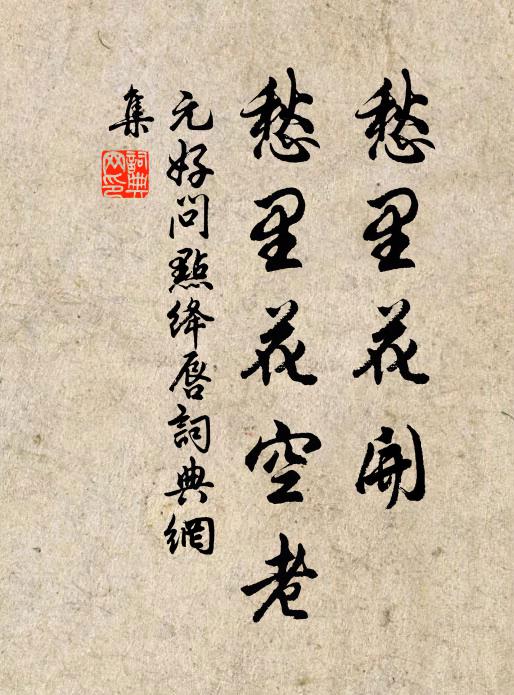 愁里花開
愁里花空老
元好問點絳唇詞典網
集
詞典
网印